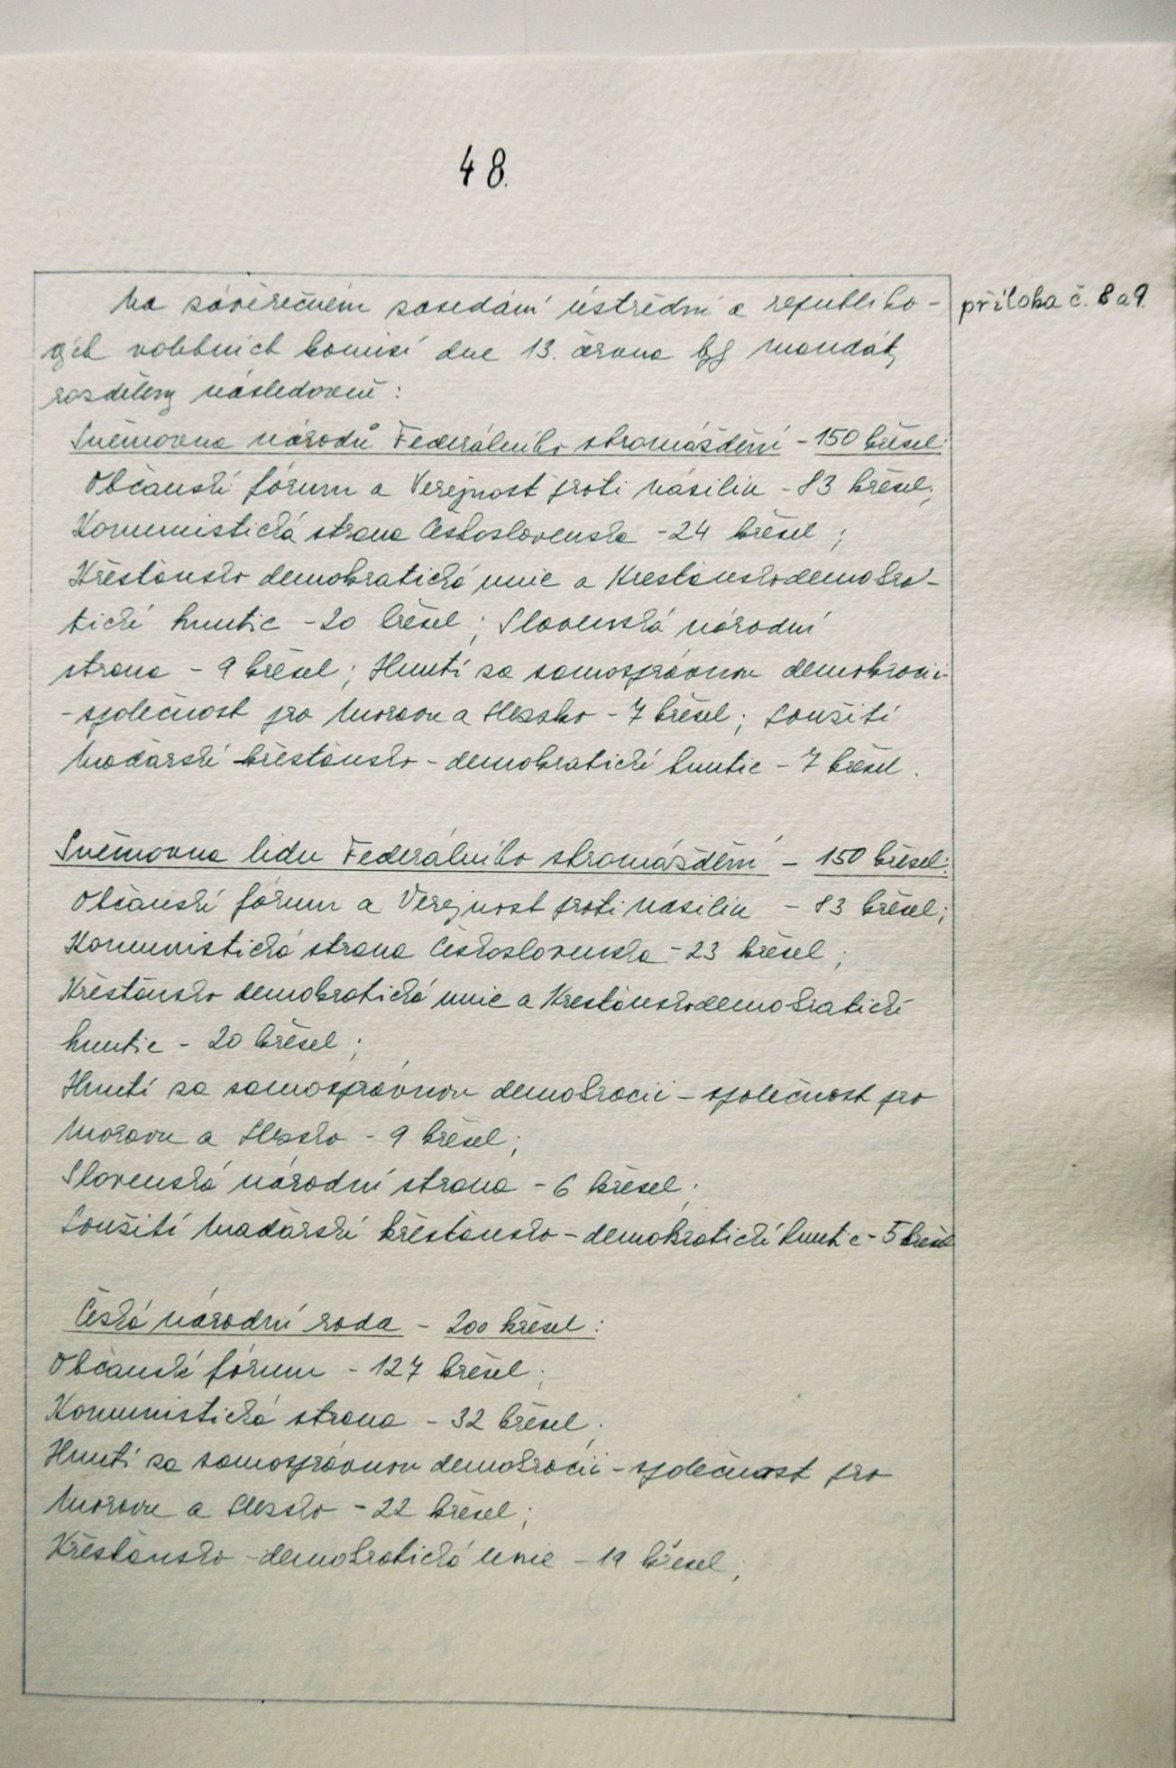 48.
Na závěrečném zasedání ústřední a republiko-
vých volebních komisí dne 13. června byly mandáty
rozděleny následovně:
příloha č. 8 a 9.
Sněmovna národů Federálního shromáždění - 150 křesel:
Občanské fórum a Verejnost proti násiliu - 83 křesel;
Komunistická strana Československa - 24 křesel;
Křesťansko demokratická unie a Kresťanskodemokra-
tické hnutie - 20 křesel; Slovenská národní
strana - 9 křesel; Hnutí za samosprávnou demokracii-
-společnost pro Moravu a Slezsko - 7 křesel; Soužití
Maďarské křesťansko-demokratické hnutie - 7 křesel.
Sněmovna lidu Federálního shromáždění - 150 křesel:
Občanské fórum a Verejnost proti násiliu - 83 křesel;
Komunistická strana Československa - 23 křesel;
Křesťansko demokratická unie a Kresťanskodemokratické
hnutie - 20 křesel;
Hnutí za samosprávnou demokracii - společnost pro
Moravu a Slezsko - 9 křesel;
Slovenská národní strana - 6 křesel;
Soužití Maďarské křesťansko-demokratické hnutie - 5 křesel
Česká národní rada - 200 křesel:
Občanské fórum - 127 křesel;
Komunistická strana - 32 křesel;
Hnutí za samosprávnou demokracii - společnost pro
Moravu a Slezsko - 22 křesel;
Křesťansko-demokratická unie - 19 křesel;